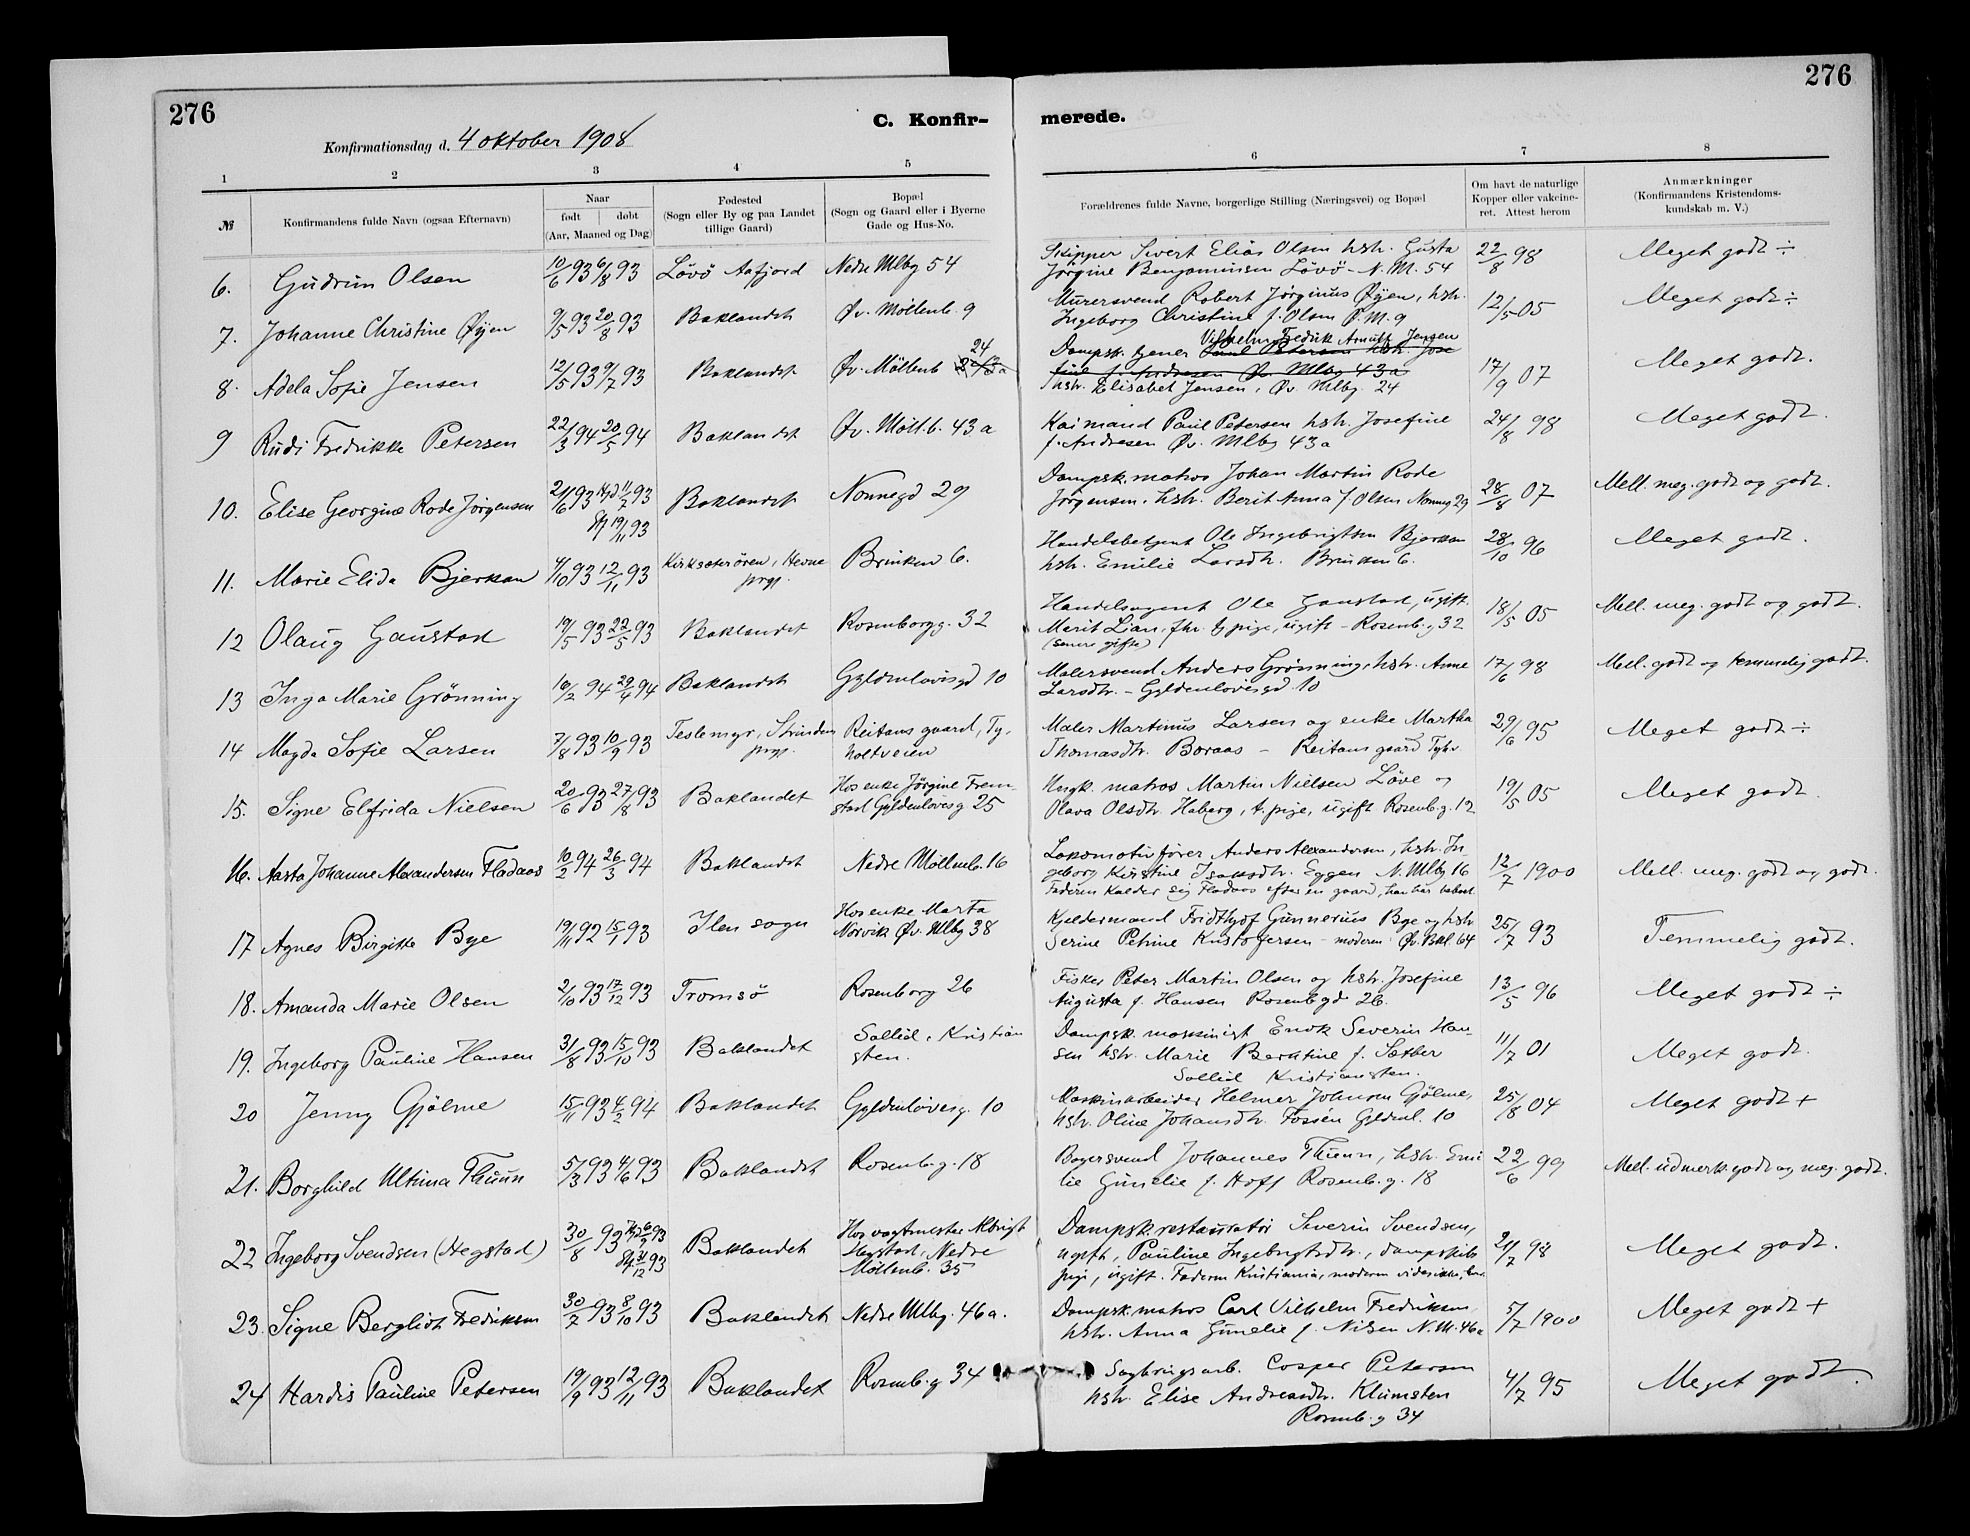 276
276
C. Konfir- merede.
Konfirmationsdag d. 4 oktober 1908
1 2 3 4 5 6 7 8
№
Konfirmandens fulde Navn (ogsaa Efternavn)
Naar
født | døbt
(Aar, Maaned og Dag)
Fødested
(Sogn eller By og paa Landet
tillige Gaard)
Bopæl
(Sogn og Gaard eller i Byerne
Gade og Hus-No.
Forældrenes fulde Navne, borgerlige Stilling (Næringsvei) og Bopæl
Om havt de naturlige
Kopper eller vakcine-
ret. Attest herom
Anmærkninger
(Konfirmandens Kristendoms-
kundskab m. V.)
6. Gudrun Olsen 10/6 93 6/8 93 Lövö Aafjord Nedre Mlbg 54 Skipper Sivert Elias Olsen hstr. Gusta 22/8 98 Meget godt ÷
Jørgine Benjaminsen Lövö - N. M. 54
7. Johanne Christine Øyen 9/5 93 20/8 93 Baklandet Øv. Möllenb. 9 Murersvend Robert Jørginus Øyen, hstr. 12/5 05 Meget godt ÷
Ingeborg Christine f. Olsen Ø. M. 9
8. Adela Sofie Jensen 12/5 93 9/7 93 Baklandet Øv. Möllenb 24 Dampsk. fyener Vilhelm Fredrik Arnulf Jensen 17/9 07 Meget godt.
Paul Petersen hstr. Jose
fine f. Andresen Øv. Mlbg 43 a
hstr. Elisabet Jensen, Øv. Mlbg. 24
9 Rudi Fredrikke Petersen 22/3 94 20/5 94 Baklandet Øv. Möll.b. 43 a Kaimand Paul Petersen hstr. Josefine 24/8 98 Meget godt.
f. Andresen Øv. Mlbg 43 a
10. Elise Georgine Rode Jørgensen 21/6 93 11/7 93 Baklandet Nonnegd 29 Dampsk. matros Johan Martin Rode 28/8 07 Mell. meg. godt og godt.
19/11 93 Jørgensen, hstr. Berit Anna f. Olsen Nonneg 29
11. Marie Elida Bjerkan 4/10 93 12/11 93 Kirksæterören, Hevne Brinken 6. Handelsbetjent Ole Ingebrigtsen Bjerkan 28/10 96 Meget godt.
prgj. hstr. Emilie Larsdtr. Brinken 6.
12 Olaug Gaustad 19/5 93 22/5 93 Baklandet Rosenborgg. 32 Handelsagent Ole Gaustad, ugift 18/5 05 Mell. meg. godt og godt.
Merit Lian, fhv. tj. pige, ugift - Rosenb. g 32
(senere gifte)
13 Inga Marie Grönning 16/2 94 29/4 94 Baklandet Gyldenlövisgd 10 Malersvend Anders Grönning, hstr. Anne 17/6 98 Mell. godt og temmelig godt.
Larsdtr. - Gyldenlovisgd. 10
14 Magda Sofie Larsen 7/8 93 10/9 93 Teslemyr, Strinden Reitans gaard, Ty, Maler Martinus Larsen og enke Martha 29/6 95 Meget godt ÷
prgj. holtveien Thomasdtr. Boraas - Reitans gaard Tyhv
15. Signe Elfrida Nielsen 20/6 93 27/8 93 Baklandet Hos enke Jörgine Frem- Ungk. matros Martin Nielsen Löve og 19/5 05 Meget godt.
stad Gyldenlövesg 25 Olava Olsdtr. Haberg, t. pige, ugift Rosenb. g. 12
16. Aasta Johanne Alexandersen Fladaas 10/2 94 26/3 94 Baklandet Nedre Möllenb. 16 Lokomotivfører Anders Alexandersen, hstr. In- 12/7 1900 Mell. meg. godt og godt.
geborg Kristine Isaksdtr. Eggen N. Mlbg 16
Faderen kalder sig Fladaas efter en gaard, han har beboet
17 Agnes Birgitte Bye 19/11 92 15/1 93 Ilen sogn Hos enke Marta Kjeldermand Fridthjof Gunnerius Bye og hstr 25/7 93 Temmelig godt.
Norvik Øv. Mlbg 38 Serine Petrine Kristofersen - moderen: Øv. Bkl. 64
18. Amanda Marie Olsen 2/10 93 17/12 93 Tromsö Rosenborg 26 Fisker Peter Martin Olsen og hstr. Josefine 13/5 96 Meget godt ÷
Augusta f. Hansen Rosenb gd 26.
19. Ingeborg Pauline Hansen 31/8 93 15/10 93 Baklandet Sollid, Kristian Dampsk. maskinist Enok Severin Han- 11/7 01 Meget godt.
sten. sen hstr. Marie Berntine f. Sætber
Sollid Kristiansten.
20 Jenny Gjölme 15/11 93 4/2 94 Baklandet Gyldenlövesg. 10 Maskinarbeider Helmer Johnsen Gjölme, 25/8 04 Meget godt +
hstr. Oline Johansdtr. Fossen Gyldenl. 10
21. Borghild Ultima Thuun 5/3 93 4/6 93 Baklandet Rosenb. g. 18 Bagersvend Johannes Thuun, hstr. Emi 22/6 99 Mell. udmerk. godt og meg. godt.
lie Gunelie f. Hoff Rosenb. g. 18
22 Ingeborg Svendsen (Hegstad) 30/8 93 6/9 93 Baklandet Hos vagtmester Albrigt Dampsk. restauratör Severin Svendsen, 21/7 98 Meget godt.
31/12 93 Hegstad, Nedre ugift, Pauline Ingebrigtsdtr., dampskibs
Möllenb. 35 pige, ugift. Faderen Kristiania, moderen vides ikke,
23. Signe Bergliot Fredriksen 30/7 93 8/10 93 Baklandet Nedre Mlbg. 46 a. Dampsk. matros Carl Vilhelm Fredriksen, 5/7 1900 Meget godt +
hstr. Anna Gunelie f. Nilsen N. M. 46 a
24 Hardis Pauline Petersen 19/9 93 12/11 93 Baklandet Rosenb. g 34 Sagbrugsarb. Casper Petersen 4/7 95 Meget godt.
hstr. Elise Andreasdtr. Klumsten
Rosenb. g 34